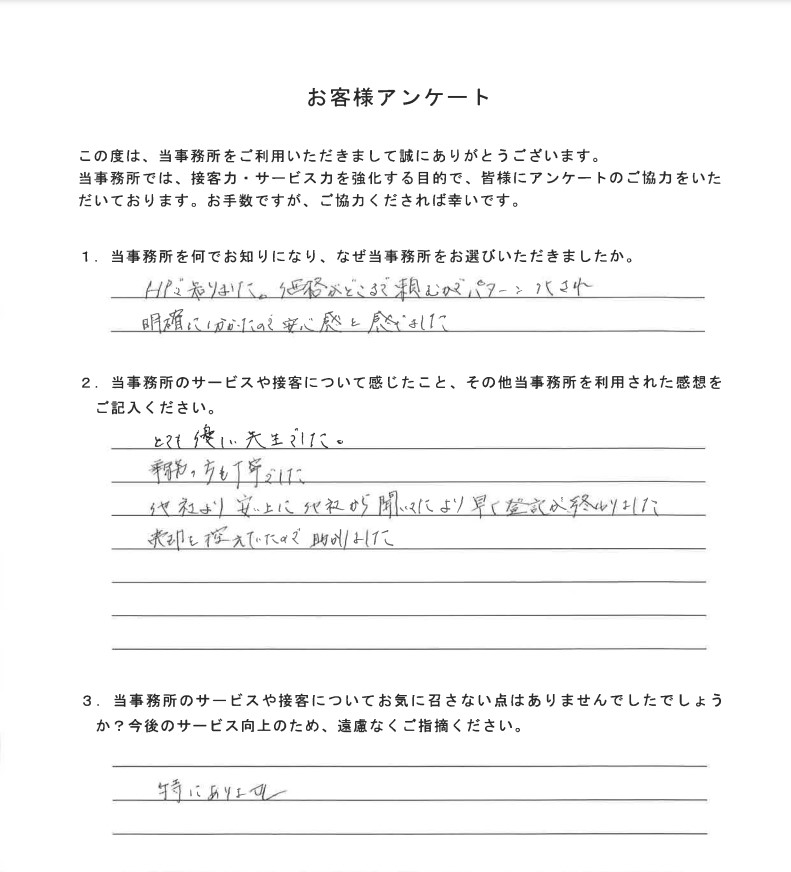 お客様アンケート
この度は、当事務所をご利用いただきまして誠にありがとうございます。
当事務所では、接客力・サービス力を強化する目的で、皆様にアンケートのご協力をいた
だいております。お手数ですが、ご協力くだされば幸いです。
１．当事務所を何でお知りになり、なぜ当事務所をお選びいただきましたか。
HPで知りました。価格がどこまで頼むかでパターン化され
明確に分かったので安心感を感じました
２．当事務所のサービスや接客について感じたこと、その他当事務所を利用された感想を
ご記入ください。
とても優しい先生でした。
事務の方も丁寧でした
他社より安い上に他社から聞いてたより早く登記が終わりました
売却を控えていたので助かりました
３．当事務所のサービスや接客についてお気に召さない点はありませんでしたでしょう
か？今後のサービス向上のため、遠慮なくご指摘ください。
特にありません